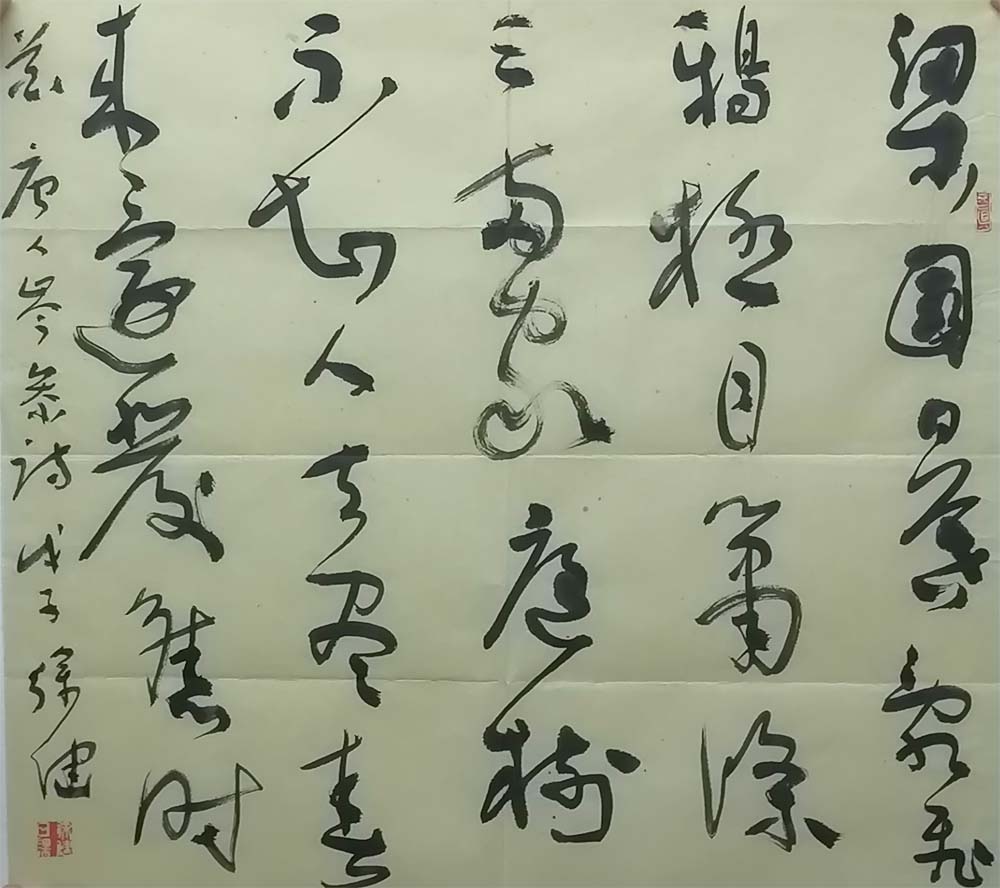 梁園日暮亂飛
鴉極目蕭條
三兩家庭樹
不知人去盡春
來還發舊時
花唐人岑參詩戊子徐健